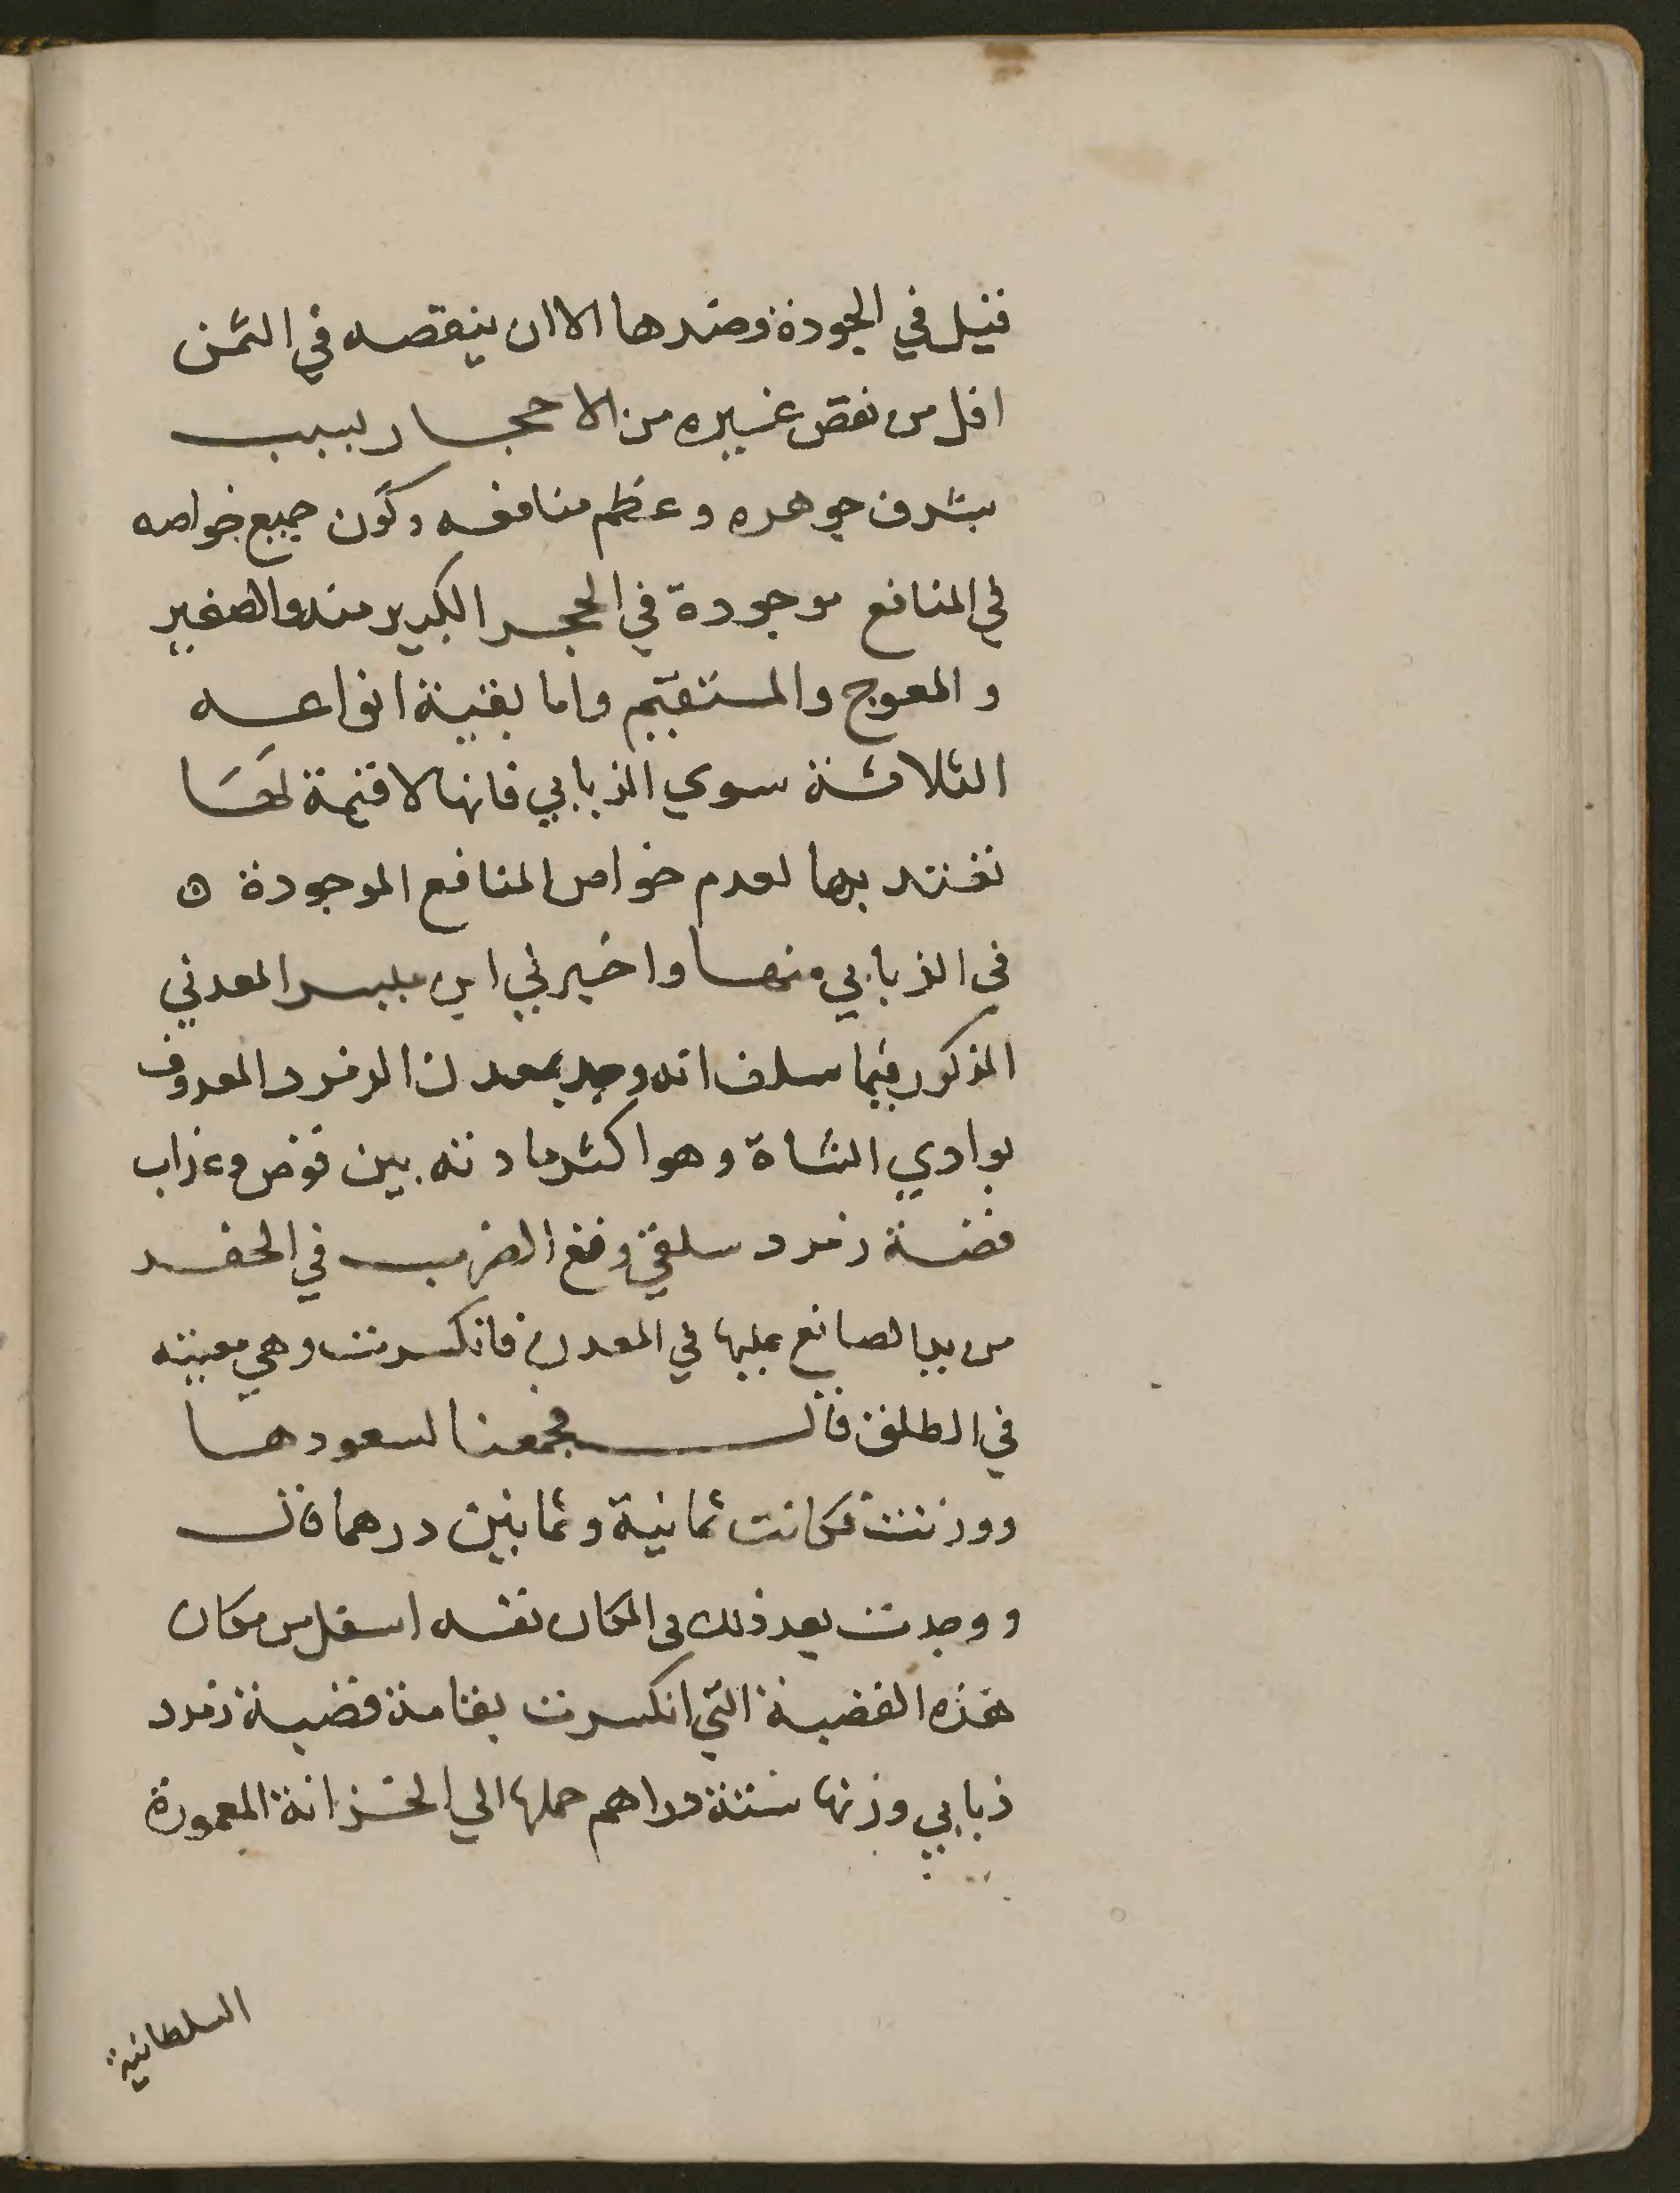 قيل في الجودة وضدها الا ان ينقصه في الثمن
اقل من نقص غيره من الاحجار لسبب
بشرف جوهره وعظم منافعه وكون جميع خواصه
في المنافع موجودة في الحجر الكبير منه والصغير
والمعوج والمستقيم واما بقية انواعه
الثلاثة سوي الذبابي فانها لا قيمة لها
تعتد بها لعدم خواص المنافع الموجودة ه
في الذبابي منها واخبرني ابن مليسر المعدني
المذكور فيما سلف انه وجد بمعدن الزمرد المعروف
بوادي الشاة وهو اكثر مادته بين قوص وعذاب
قضة زمرد سلقي وقع الضرب في الحفر
من يد الصانع عليها في المعدن فانكسرت وهي معينة
في الطلق قال فجمعنا لسعودها
ووزنت فكانت ثمانية وثمانين درهما قال
ووجدت بعد ذلك في المكان نفسه اسفل من مكان
هذه القضبة التي انكسرت بقامة قضبة زمرد
ذبابي وزنها ستة دراهم حملها الي الخزانة المعمورة
السلطانية